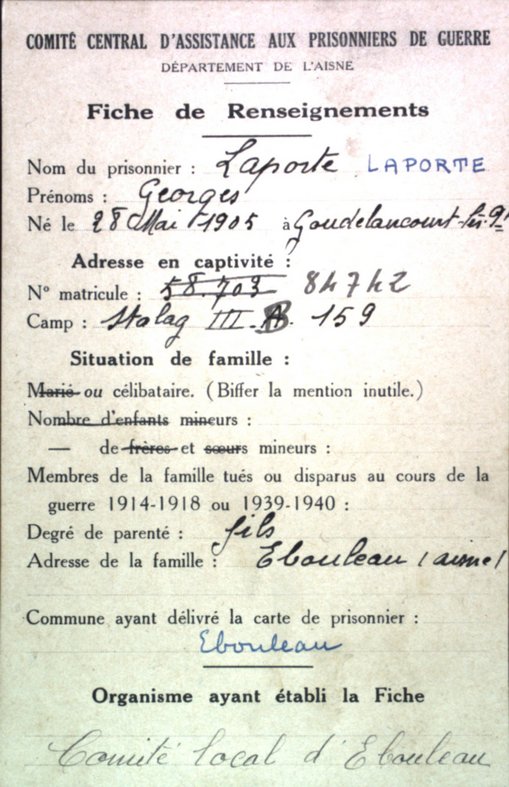 COMITÉ CENTRAL D'ASSISTANCE AUX PRISONNIERS DE GUERRE
DÉPARTEMENT DE L'AISNE
Fiche de Renseignements
Nom du prisonnier : Laporte LAPORTE
Prénoms : Georges
Né le 28 Mai 1905 à Goudelancourt-lès-
Adresse en captivité :
N° matricule : 58.703 84742
Camp : Stalag III B 159
Situation de famille :
Marié ou célibataire. (Biffer la mention inutile.)
Nombre d'enfants mineurs :
— de frères et sœurs mineurs :
Membres de la famille tués ou disparus au cours de la
guerre 1914-1918 ou 1939-1940 :
Degré de parenté : fils
Adresse de la famille : Ebouleau (aisne)
Commune ayant délivré la carte de prisonnier :
Ebouleau
Organisme ayant établi la Fiche
Comité local d'Ebouleau